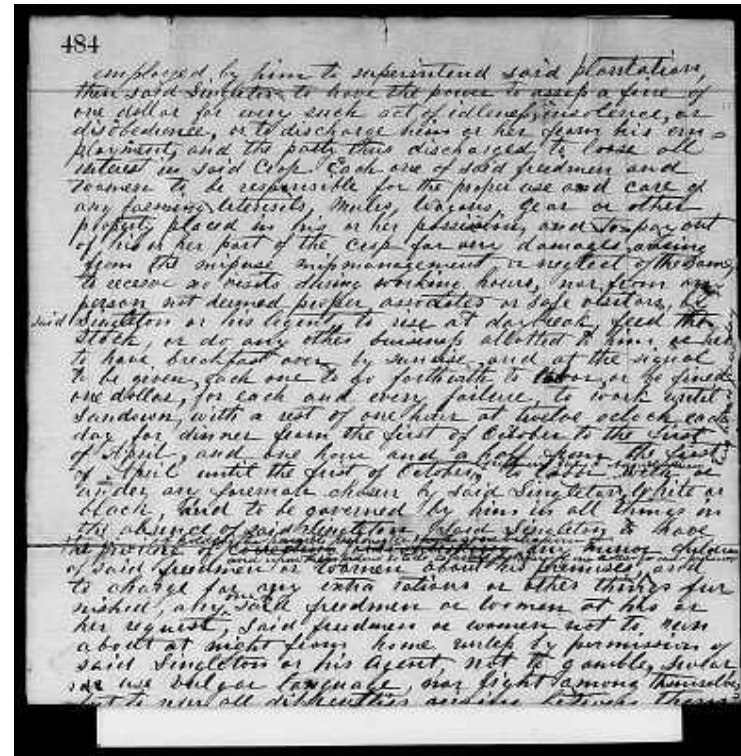 484
employed by him to superintend said plantation,
then said Singleton to have the power to assess a fine of
one dollar for every such act of idleness, insolence, or
disobedience, or to discharge him or her from his em=
ployment, and the party thus discharged to loose all
interest in said Crop. Each one of said freedmen and
women to be responsible for the proper use and care of
any farming Utensils, Mules, Wagons, Gear or other
property placed in his or her possession, and to pay out
of his or her part of the crop for every damages arising
from the misuse mismanagement or neglect of the same,
to receive no visits during working hours, nor from any
person not deemed proper associates or safe visitors, by
said Singleton or his Agent, to rise at day break, feed the
stock, or do any other business allotted to him or her
to have breakfast over by sunrise, and at the signal
to be given, each one to go forthwith to labor, or be fined
one dollar, for each and every failure, to work until
sundown, with a rest of one hour at twelve oclock each
day for dinner from the first of October to the first
of April, and one hour and a half from the first
of April until the first of October, to
under any foreman chosen by said Singleton, White or
black, and to be governed by him in all things in
the absence of said Singleton, said Singleton to have
the of any minor children
of said freedmen or women about his premises, and
to charge for any extra rations or other things fur
nished, any said freedmen or women at his or
her request, Said freedmen or women not to run
about at night from home unless by permission of
said Singleton or his Agent, not to gamble, swear
or use Vulgar language, nor fight among themselves,
all difficulties arising between them